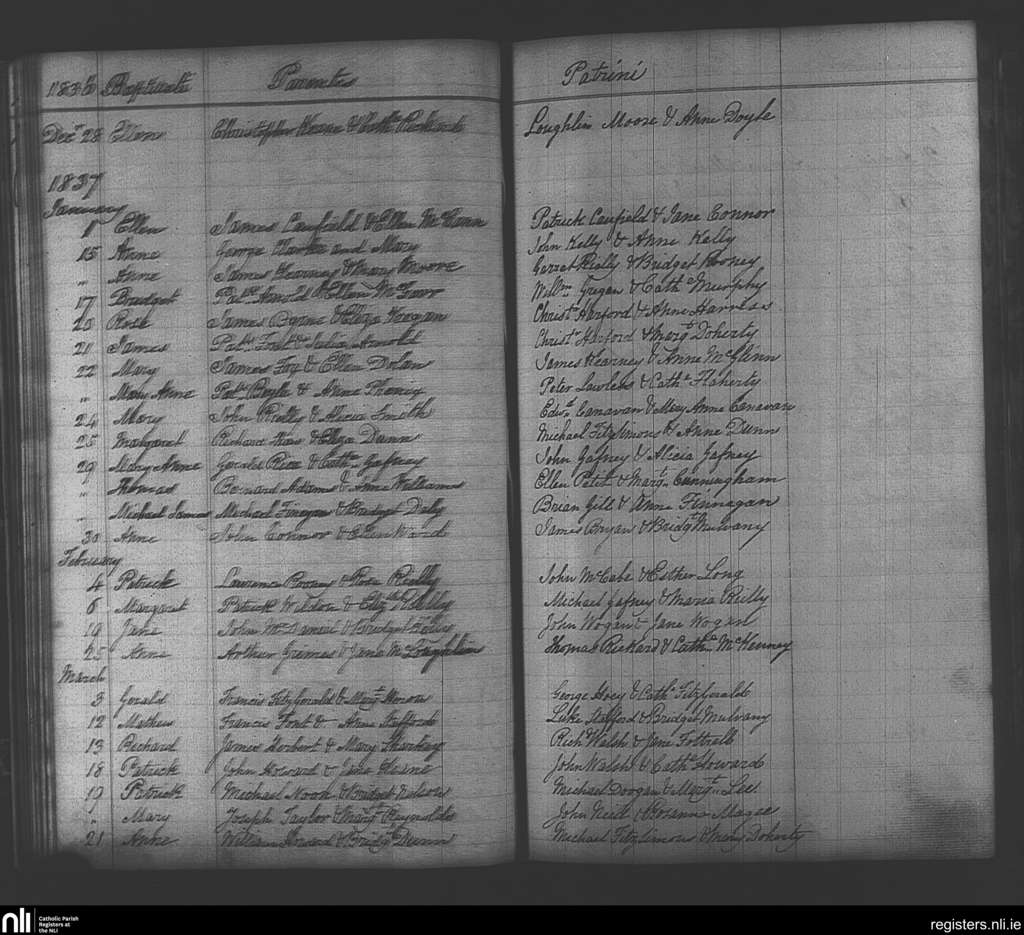 1836 Baptisats Parents Patrini
Decr 28 Ellen Christopher Keane & Cathe Rickard Loughlin Moore & Anne Doyle
1837
January
1 Ellen James Caufield & Ellen McCann Patrick Caufield & Jane Connor
15 Anne George Clarke and Mary John Kelly & Anne Kelly
" Anne James Kearney & Mary Moore Garret Reilly & Bridget Rooney
17 Bridget Patk Arnold & Ellen Willm Gregan & Cathe Murphy
20 Rose James Byrne & Eliza Christr Harford & Anne
21 James Patk Font & Julia Arnold Christr Harford & Margt Doherty
22 Mary James Foy & Ellen Dolan James Kearney & Anne McGlinn
" Mary Anne Patk Boyle & Anne Phenix Peter Lawless & Cathe Flaherty
24 Mary John Reilly & Alicia Smith Edwd Canavan & Mary Anne Canavan
25 Margaret Richard & Eliza Dunn Michael Fitzsimons & Anne Dunn
29 Mary Anne Gerald Rice & Cathe Gafney John Gafney & Alicia Gafney
" Thomas Bernard Adams & Anne Williams Ellen Petit & Margt Cunningham
" Michael James Michael Finegan & Bridget Daly Brian Gill & Anne Finnagan
30 Anne John Connor & Ellen Ward James Bryan & Bridgt Mulvany
February
4 Patrick Lawrence & Rose Reilly John McCabe & Esther Long
6 Margaret Patrick Weldon & Elizth Kelly Michael Gafney & Maria Reilly
19 Jane John McDaniel & Bridget John Wogan & Jane Wogan
25 Anne Arthur Grimes & Jane McLoughlin Thomas Rickard & Cathe McKenney
March
3 Gerald Francis FitzGerald & Margt George Hoey & Cathe Fitzgerald
12 Mathew Francis Font & Anne Stafford Luke Stafford & Bridget Mulvany
13 Richard James Herbert & Mary Sharkey Richd Walsh & Jane Fottrell
18 Patrick John Howard & Jane John Walsh & Cathe Howard
19 Patrick Michael & Bridget Nelson Michael Doogan & Margt Lee
" Mary Joseph Taylor & Margt Reynolds John Neill & Rosanna Magee
21 Anne William Howard & Bridgt Dunn Michael Fitzsimons & Mary Doherty
nli Catholic Parish Registers at the NLI
registers.nli.ie